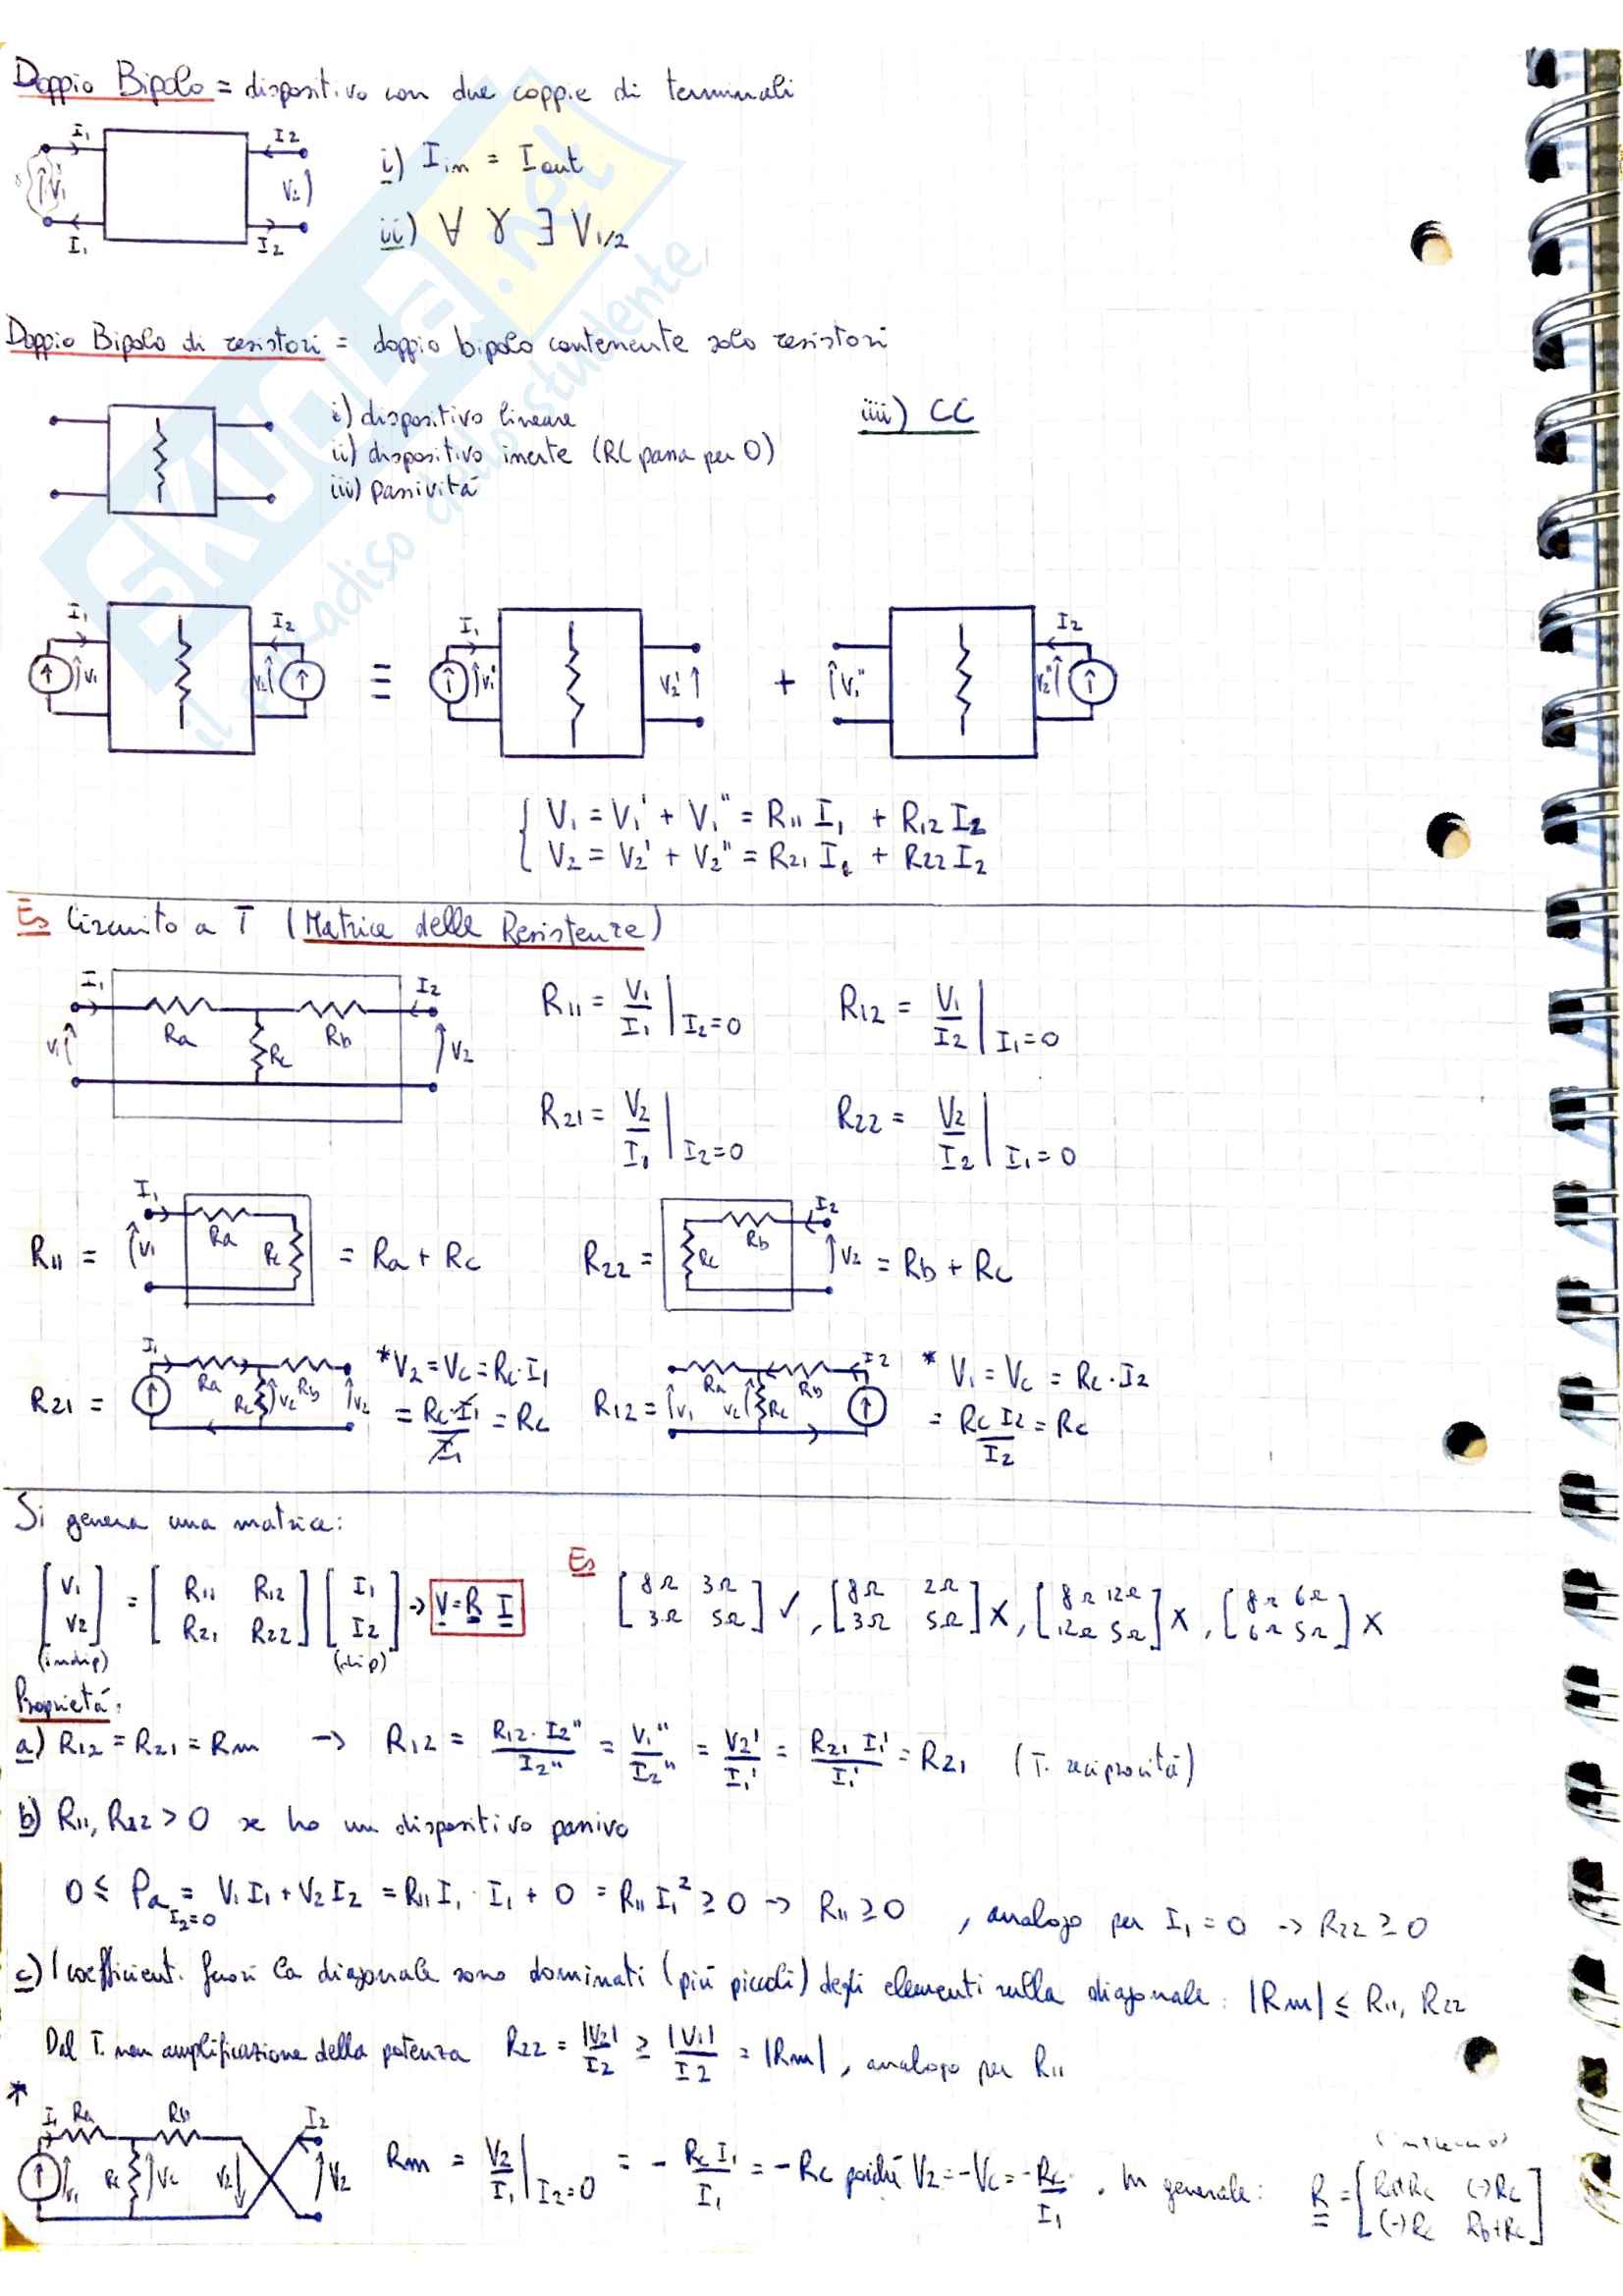 Doppio Bipolo = dispositivo con due coppie di terminali
I₁ I2
V₁ V₂
I₁ I2
i) Iin = Iout
ii) ∀ γ ∃ V1/2
SKUOLA.net
il paradiso dello studente
Doppio Bipolo di resistori = doppio bipolo contenente solo resistori
i) dispositivo lineare
ii) dispositivo inerte (RC passa per 0)
iii) passività
iiii) CC
I₁ V₁ V2 I2 ≡ I₁ V₁' V2' + V₁" V2" I2
V₁ = V₁' + V₁" = R₁₁ I₁ + R12 I2
V2 = V2' + V2" = R21 I₁ + R22 I2
Es Circuito a T (Matrice delle Resistenze)
I₁ Ra Rb I2
V₁ Rc V2
R₁₁ = V₁/I₁ | I2=0 R12 = V₁/I2 | I₁=0
R21 = V2/I₁ | I2=0 R22 = V2/I2 | I₁=0
R₁₁ = I₁ V₁ Ra Rc = Ra + Rc R22 = Rc Rb I2 V2 = Rb + Rc
R21 = I₁ Ra Rc Vc Rb V2 *V2 = Vc = Rc·I₁
= Rc·I₁/I₁ = Rc
R12 = V₁ Ra Vc Rc Rb I2 * V₁ = Vc = Rc·I2
= Rc I2/I2 = Rc
Si genera una matrice:
[V₁ V2] = [R₁₁ R12 R21 R22] [I₁ I2] → V = R I
(indip) (dip)
Es [8Ω 3Ω 3Ω 5Ω] ✓, [8Ω 2Ω 3Ω 5Ω] X, [8Ω 12Ω 12Ω 5Ω] X, [8Ω 6Ω 6Ω 5Ω] X
Proprietà:
a) R12 = R21 = Rm → R12 = R12·I2"/I2" = V₁"/I2" = V2'/I₁' = R21 I₁'/I₁' = R21 (T. reciprocità)
b) R₁₁, R22 > 0 se ho un dispositivo passivo
0 ≤ Pa = V₁I₁ + V2I2 = R₁₁I₁·I₁ + 0 = R₁₁I₁² ≥ 0 → R₁₁ ≥ 0, analogo per I₁ = 0 → R22 ≥ 0
I2=0
c) I coefficienti fuori la diagonale sono dominati (più piccoli) degli elementi sulla diagonale: |Rm| ≤ R₁₁, R22
Dal T. non amplificazione della potenza R22 = |V2|/I2 ≥ |V₁|/I2 = |Rm|, analogo per R₁₁
*
I₁ Ra Rb I2
V₁ Rc Vc V2 V2
Rm = V2/I₁ | I2=0 = - Rc I₁/I₁ = -Rc poiché V2 = -Vc = -Rc/I₁. In generale: R = [Ra+Rc (-)Rc (-)Rc Rb+Rc]